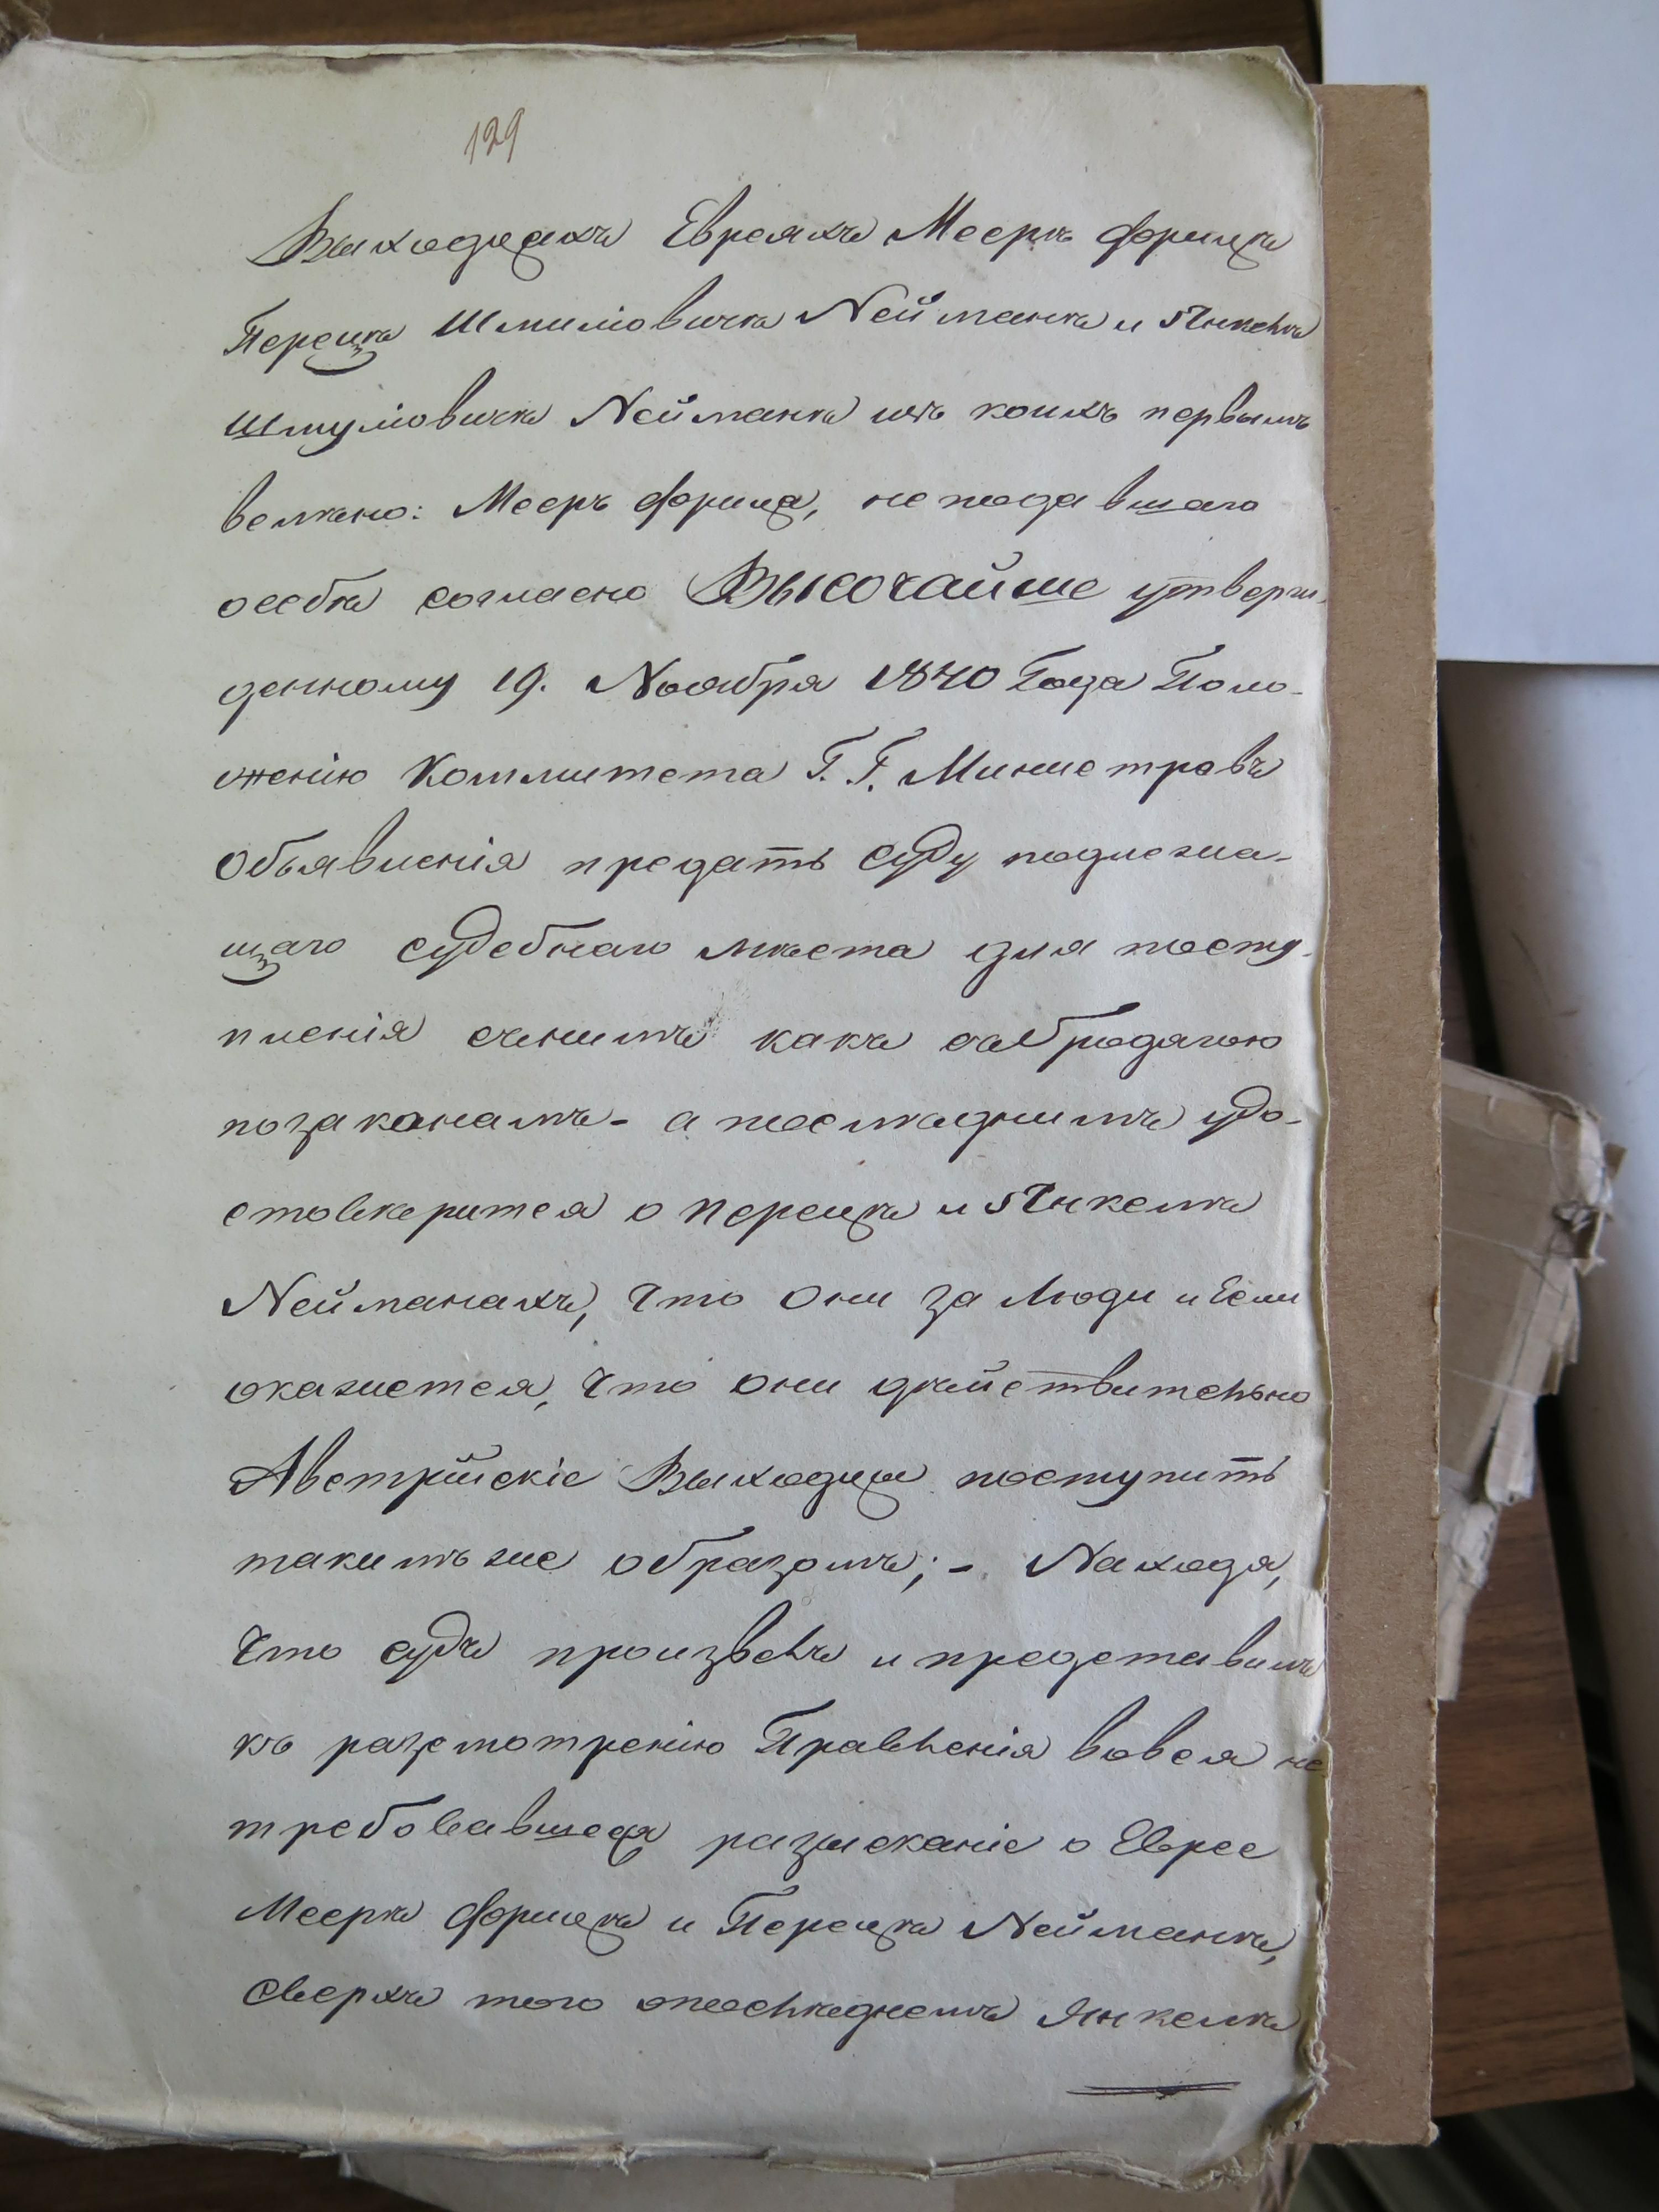 129
Выходцахъ Евреяхъ Меерѣ Форшцѣ
Перецѣ Шмиліовичѣ Нейманѣ и Янкелѣ
Шмуліовичѣ Нейманѣ изъ коихъ первымъ
велѣно: Меерѣ Форшца, неподавшаго
осебѣ согласно Высочайше утверж-
денному 19. Ноября 1840 Года Поло-
женію Коммитета Г. Г. Министровъ
Объявленія предать суду подлежа-
щаго судебнаго мѣста для посту-
пленія снимъ какъ сабродягою
позаконамъ - а послѣднимъ удо-
стовѣрится о Перецѣ и Янкелѣ
Нейманахъ, Что Они за Люди и Если
окажется, Что Они дѣйствительно
Австрійскіе Выходцы поступить
такимъже образомъ; - Находя,
Что судъ произвелъ и представилъ
къ разсмотренію Правленія вовся не
требовавшееся разысканіе о Еврее
Меерѣ Форшцѣ и Перецѣ Нейманѣ,
Сверхъ того опослѣднемъ Янкелѣ